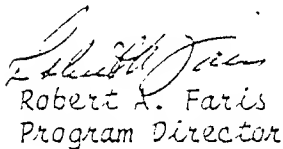 Robert A. Faris
Program Director